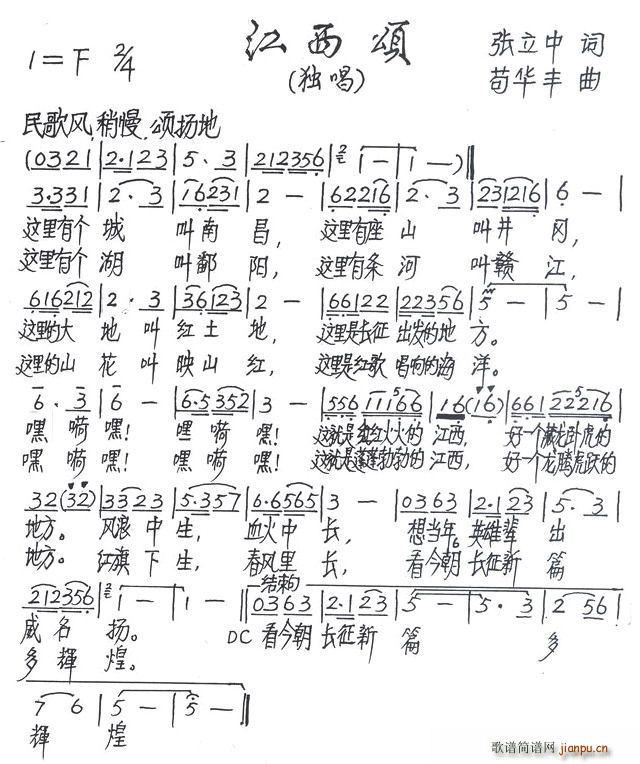 江西颂
(独唱)
1=F 2/4
张立中 词
苟华丰 曲
民歌风 稍慢 颂扬地
(0321|2·123|5·3|212356|2 i-|i-)‖
3·331|2·3|16231|2-|62216|2·3|231216|6-|
这里有个 城 叫南 昌, 这里有座 山 叫井 冈,
这里有个 湖 叫鄱 阳, 这里有条 河 叫赣 江,
616212|2·3|36123|2-|66122|22356|5-|5-|
这里的大 地 叫 红土 地, 这里是长征 出发的地 方。
这里的山 花 叫 映山 红, 这里是红歌 唱响的海 洋。
6·3|6-|6·5352|3-|556 11166|16(16)|661 22216|
嘿 嗬 嘿! 嘿 嗬 嘿! 这就是红红火火的 江西, 好一个藏龙卧虎的
嘿 嗬 嘿! 嘿 嗬 嘿! 这就是蓬蓬勃勃的 江西, 好一个龙腾虎跃的
32(32)|3323|5·357|6·6565|3-|0363|2·123|5·3|
地方。 风浪 中 生, 血火中 长, 想当年 英雄辈 出
地方。 红旗 下 生, 春风里 长, 看今朝 长征新 篇
结束句
212356|2 i-|i-‖0363|2·123|5-|5·3|2 56|
威名 扬。 DC 看今朝 长征新 篇 多
多辉 煌。
7 6|5-|5-‖
辉 煌
歌谱简谱网 jianpu.cn